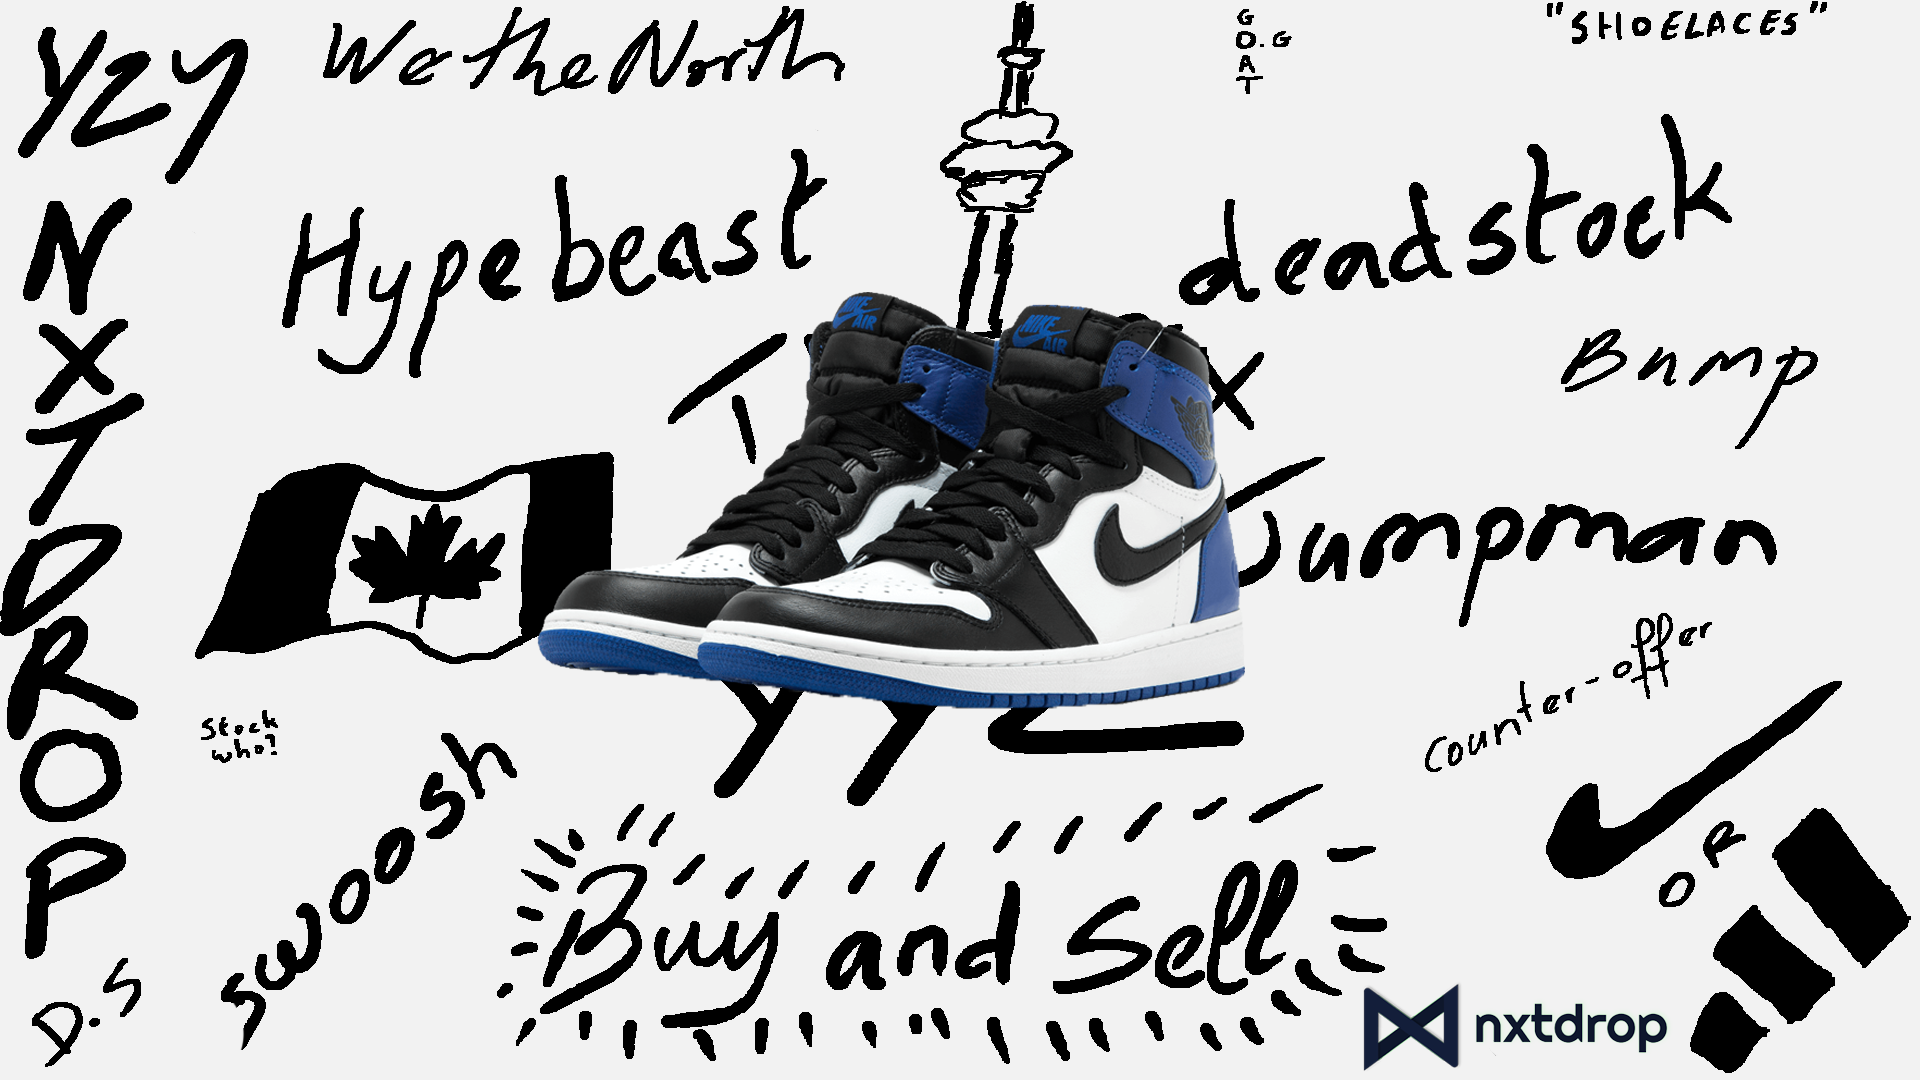 YZY
We the North
G
O.G
A
T
"SHOELACES"
NXTDROP
Hypebeast
deadstock
Bump
NIKE
AIR
NIKE
AIR
Jumpman
counter-offer
Stock
who?
swoosh
YYZ
OR
Buy and Sell
D.S
nxtdrop